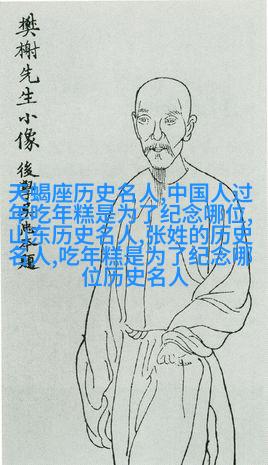 樊榭先生小像
後學
天蝎座历史名人,中国人过
年吃年糕是为了纪念哪位,
山东历史名人,张姓的历史
名人,吃年糕是为了纪念哪
位历史名人